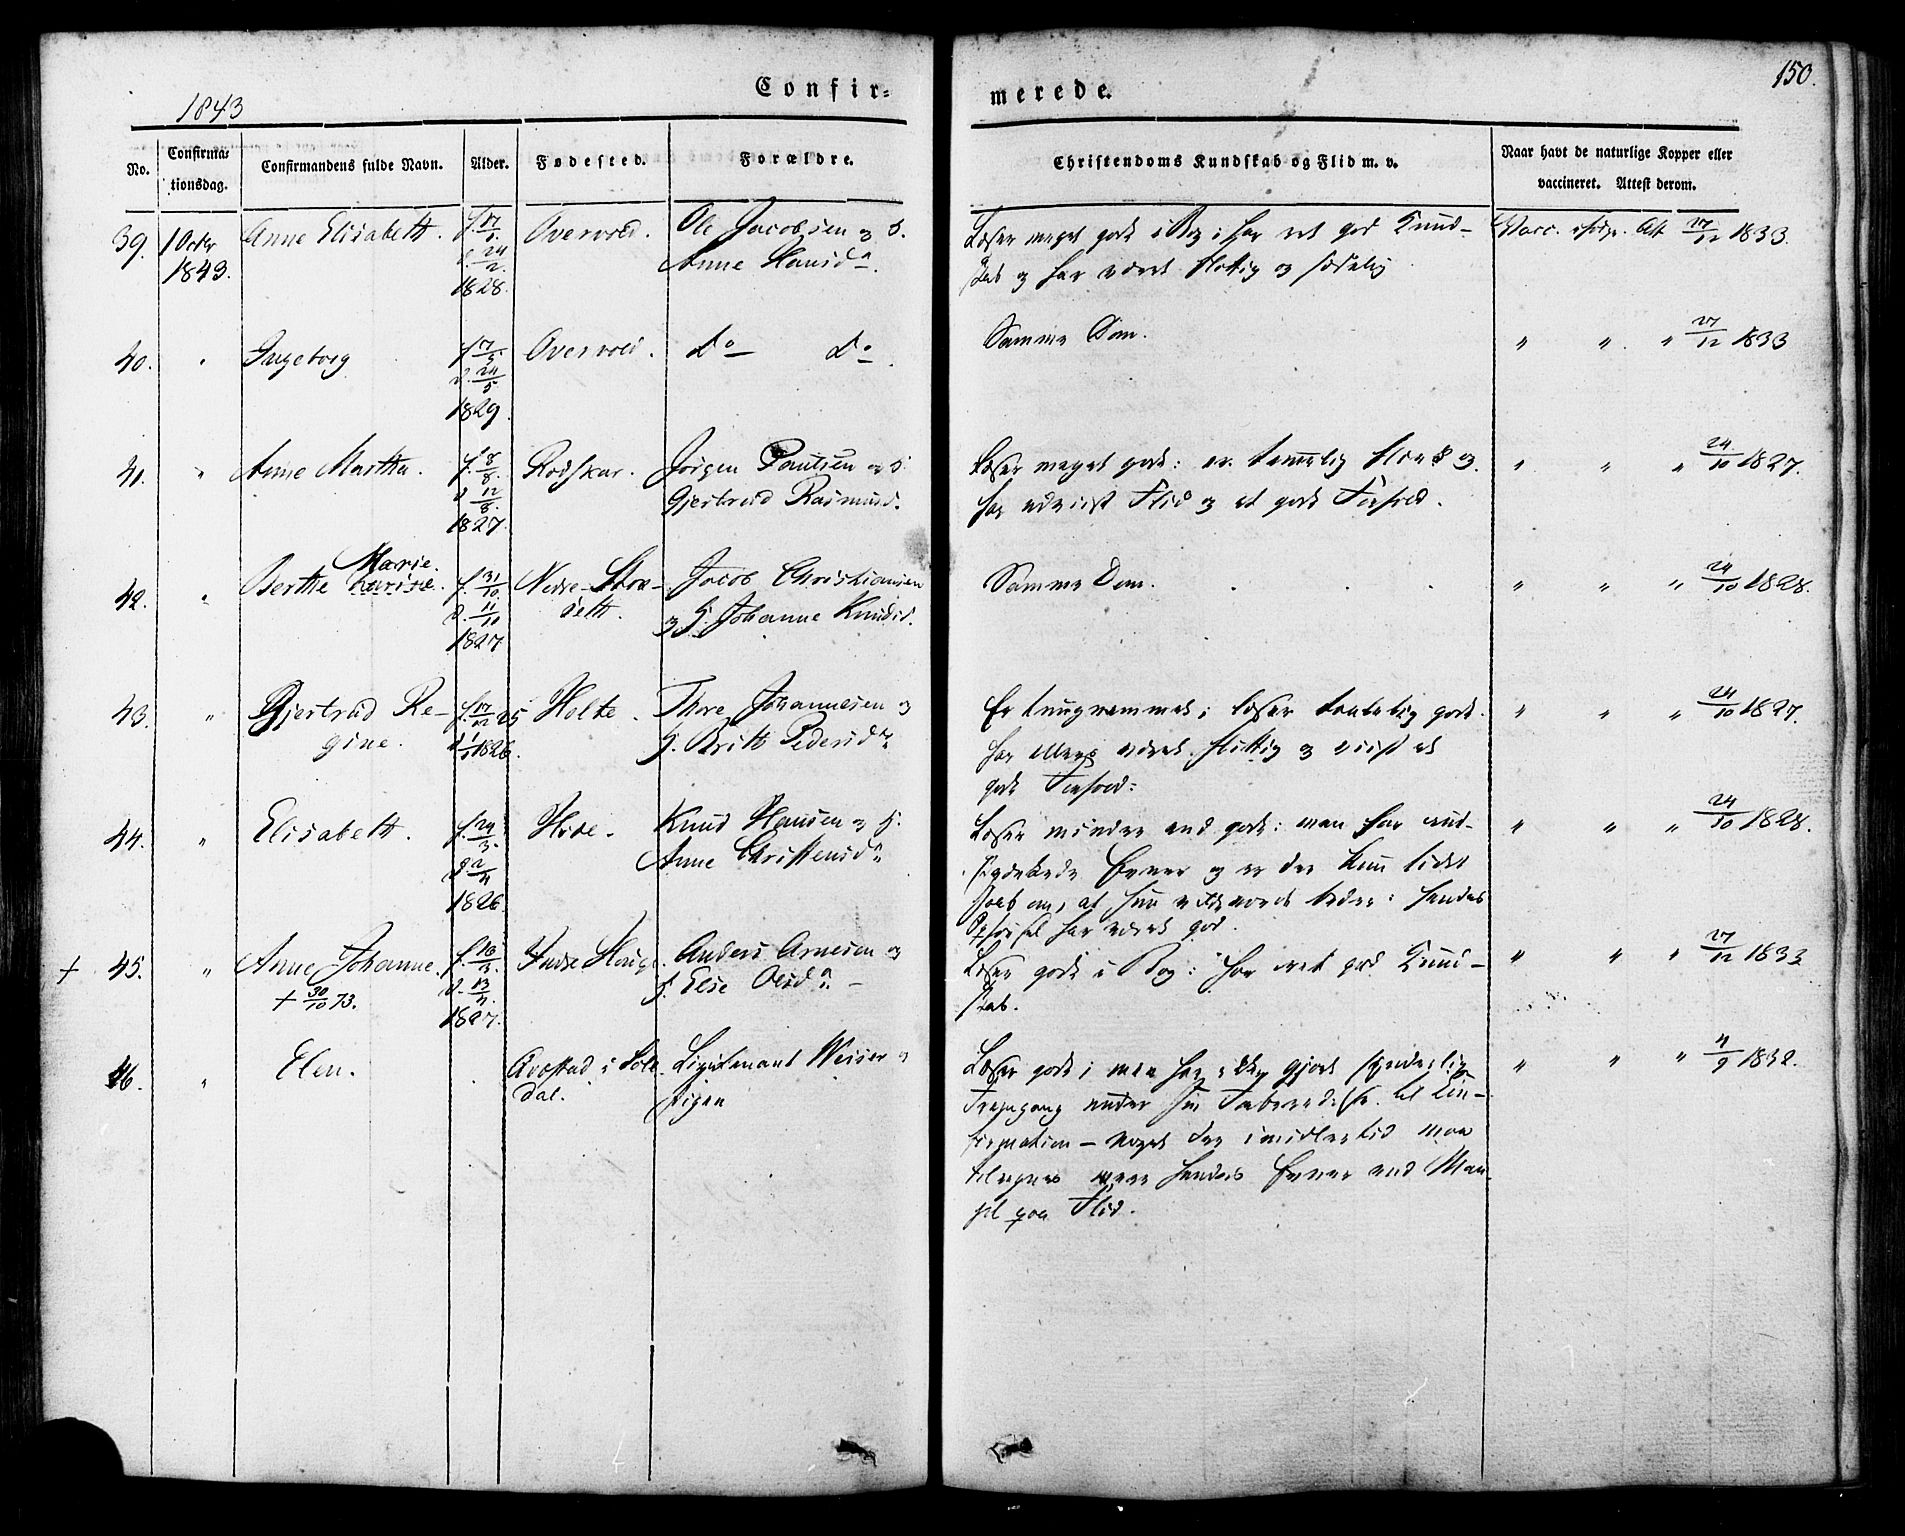 1843
Confir-
merede.
150.
No.
Confirma-
tionsdag.
Confirmandens fulde Navn.
Alder.
Fødested.
Forældre.
Christendoms Kundskab og Flid m. v.
Naar havt de naturlige Kopper eller
vaccineret. Attest derom.
39. 1 Octbr 1843. Anne Elisabeth. f. 17/1. d. 24/2. 1828. Overvold. Ole Jacobsen og H.
Anne Hansdr.
Læser meget godt i Bog; har ret god Kund-
skab og har været flittig og sædelig
Vacc. ifølge Att 27/12 1833.
40. " Ingeborg f. 7/5. d. 24/5 1829. Overvold. do do.
Samme Dom.
" " " 27/12 1833
41. " Anne Martha. f. 8/8. d. 12/8. 1827. Rødskar. Jørgen Paulsen og H.
Gjertrud Rasmusd.
Læser meget godt: er temmelig og
har udviist Flid og et godt Forhold.
" " " 24/10 1827.
42. " Berthe Marie. f. 31/10. d. 11/10 1827 Nedre-
seth.
Jacob Christiansen
og H. Johanne Knudsd.
Samme Dom.
" " " 24/10 1828.
43. " Gjertrud Re-
gine.
f. 17/12 25 d. 1/1 1826. Holte. Thore Johannesen og
H. Britt Pedersdr.
Er tungnemmet; læser temmelig godt.
har ellers været flittig og viist et
godt Forhold.
" " " 24/10 1827.
44. " Elisabeth. f. 24/3. d. 2/4 1826. Hide. Knud Hansen og H.
Anne Christensdr
Læser mindre end godt: men har ind-
skrænkede Evner og er der kun lidet
Haab om, at hun vilde bedre: hendes
Opførsel har været god.
" " " 24/10 1828.
+ 45. " Anne Johanne. f. 16/3. d. 13/4. 1827.
+ 30/10 73.
Indre Hauge. Anders Arnesen og
H. Else Olsdr.
Læser godt i Bog: har ret god Kund-
skab.
" " " 27/12 1833
46. " Elen. i
dal.
Lieutenant Weiser og
Læser godt; men har ikke gjort synderlig
Fremgang under sin Forberedelse til Con-
firmation - noget der imidlertid maa
tilregnes mere hendes Evner end Man-
gel paa Flid.
" " " 4/9 1832.